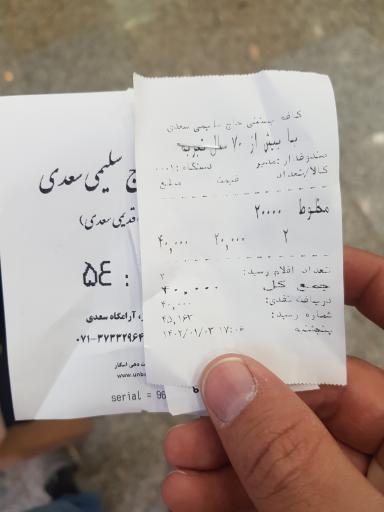 کافه بستنی حاج سلیمی سعدی
با بیش از ۷۰ سال تجربه
صندوقدار: مدیر دستگاه: ۰۰۰۱
کالا/تعداد قیمت مبلغ
مخلوط ۲۰۰۰۰
۲ ۲۰,۰۰۰ ۴۰,۰۰۰
تعداد اقلام رسید: ۲
جمع کل ۴۰,۰۰۰
دریافت نقدی: ۴۰,۰۰۰
شماره رسید: ۴۵,۱۶۳
پنجشنبه ۱۴۰۲/۰۱/۰۳ ۱۷:۰۶
ج سلیمی سعدی
قدیمی سعدی)
: ۵۴
، آرامگاه سعدی
۰۷۱-۳۷۳۳۲۹۶۴
دهی اسکار
www.unb
serial = 96